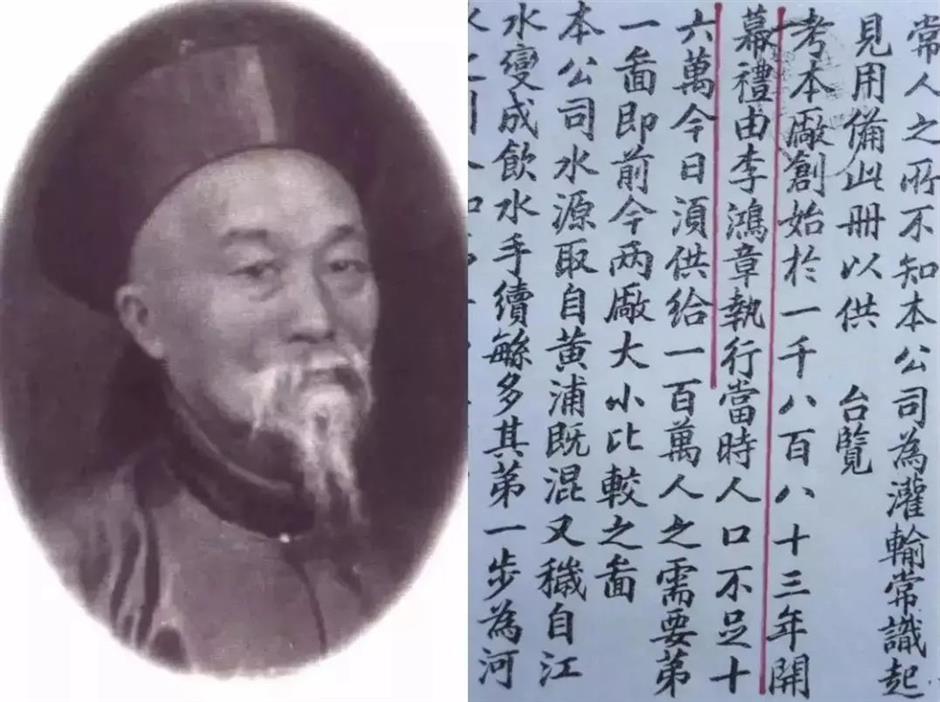 常人之所不知本公司為灌輸常識起
見用備此冊以供 台覽
考本廠創始於一千八百八十三年開
幕禮由李鴻章執行當時人口不足十
六萬今日湏供給一百萬人之需要第
一啚即前今兩廠大小比較之啚
本公司水源取自黃浦既混又穢自江
水變成飲水手續緐多其第一步為河